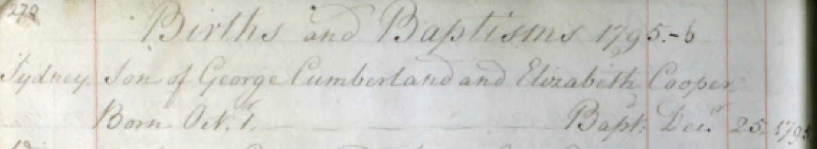 279
Births and Baptisms 1795-6
Sydney Son of George Cumberland and Elizabeth Cooper
Born Oct. 1. Bapt. Decr. 25. 1795